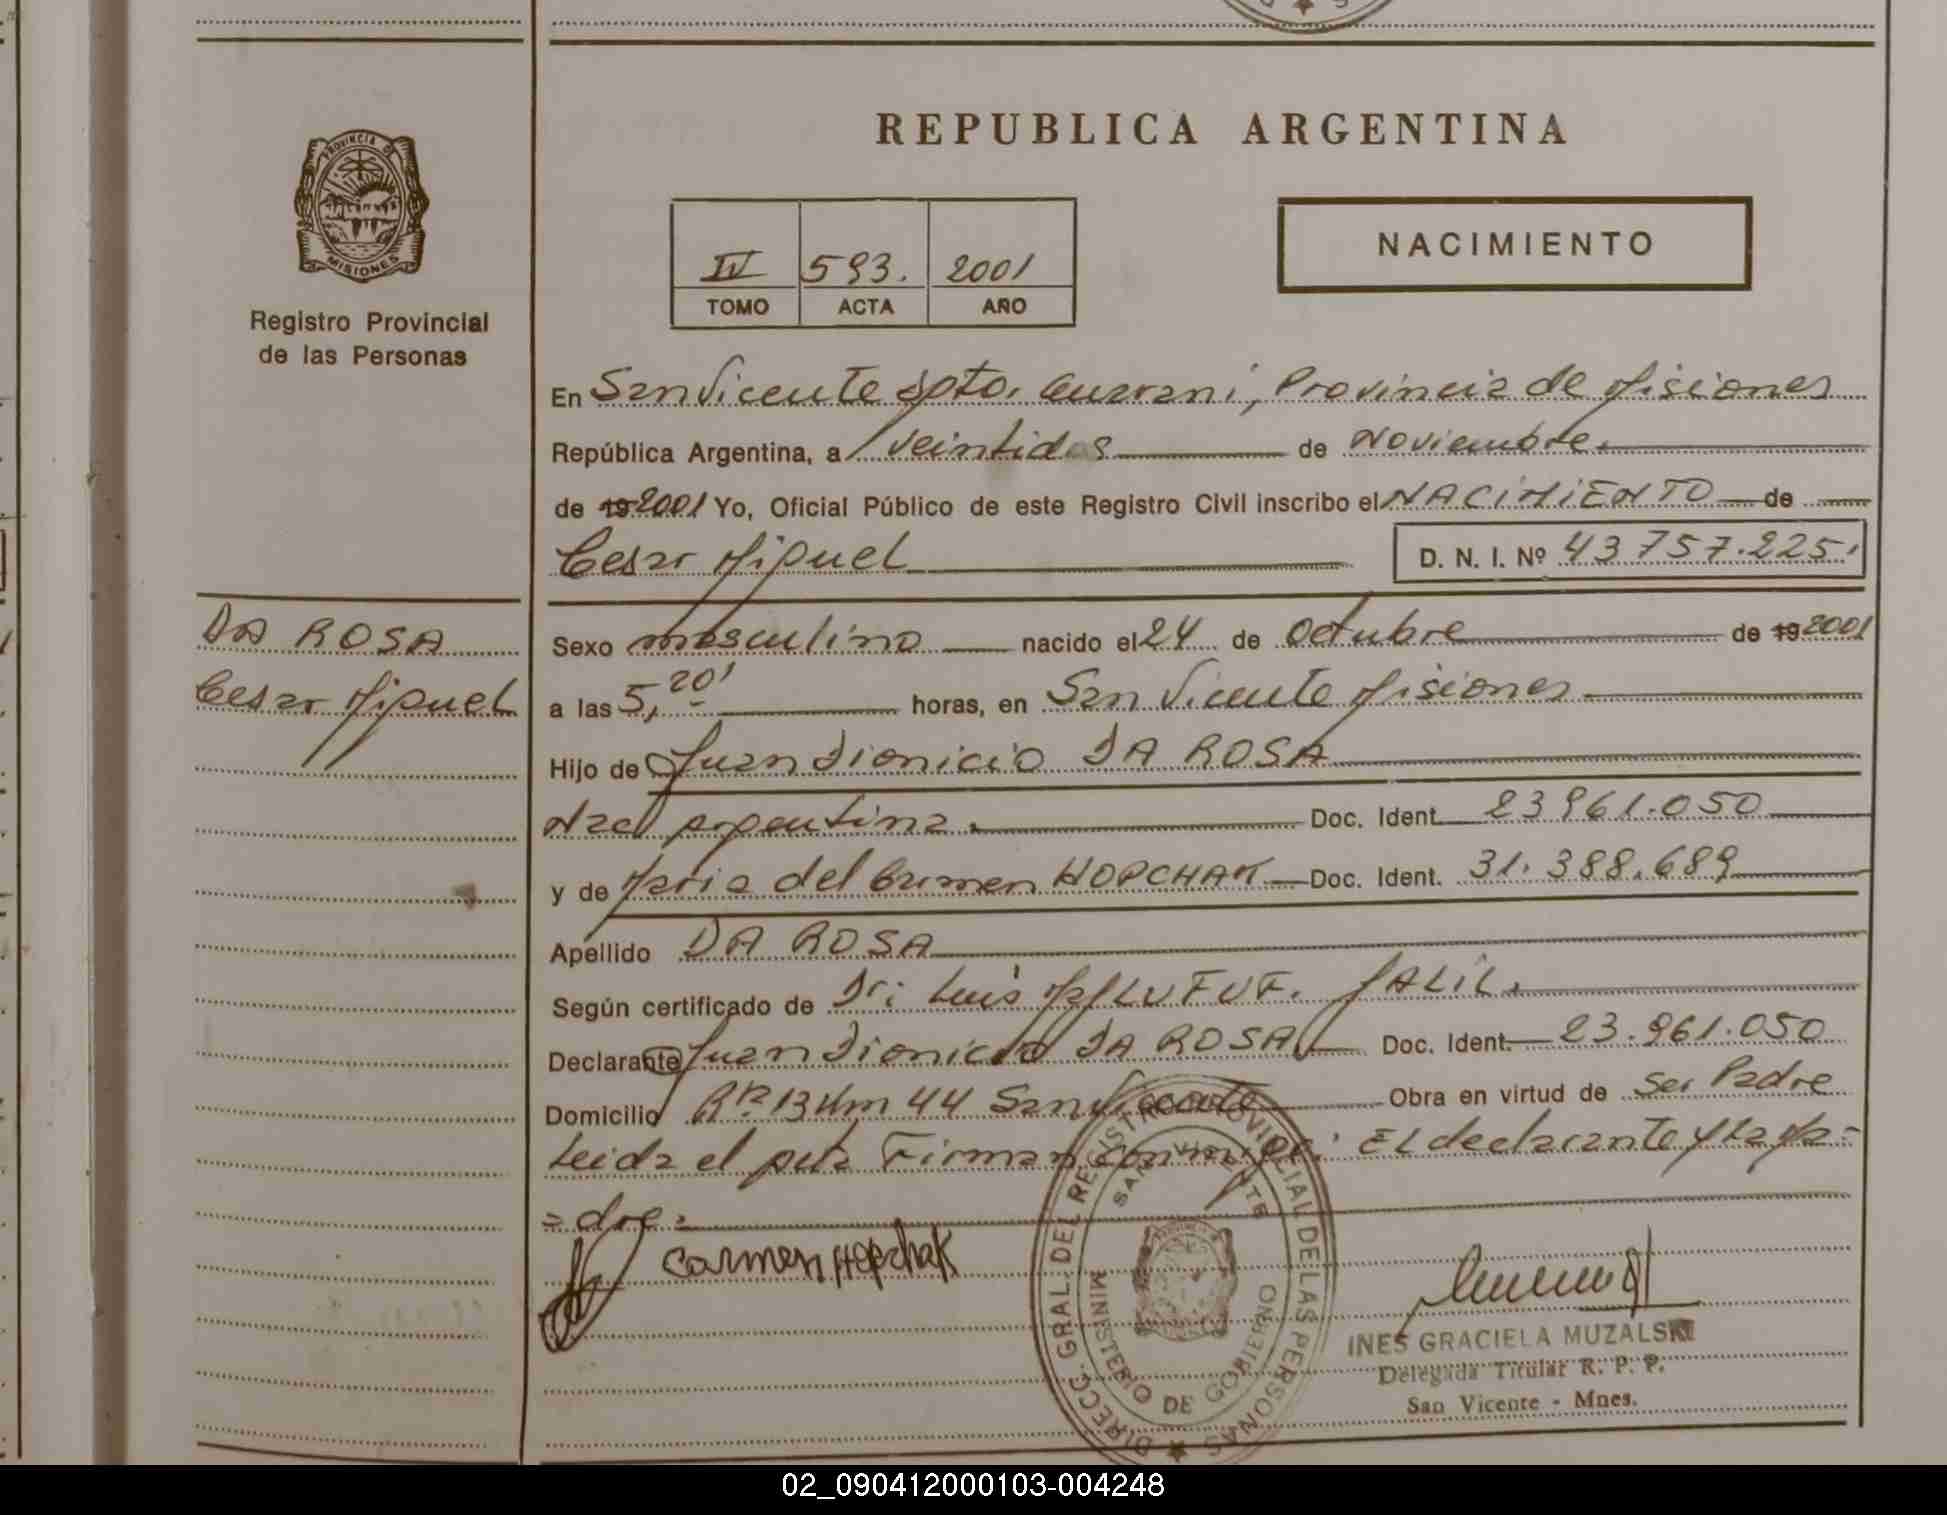 REPUBLICA ARGENTINA
PROVINCIA DE
MISIONES
Registro Provincial
de las Personas
IV 593. 2001
TOMO ACTA AÑO
NACIMIENTO
En San Vicente Dpto. Guarani, Provincia de Misiones
República Argentina, a veintidos de Noviembre.
de 19 2001 Yo, Oficial Público de este Registro Civil inscribo el NACIMIENTO de
Cesar Miguel D. N. I. Nº 43757.225.
DA ROSA
Cesar Miguel
Sexo masculino nacido el 24 de Octubre de 19 2001
a las 5,20' horas, en San Vicente Misiones
Hijo de Juan Dionicio DA ROSA
Nac argentina. Doc. Ident. 23961.050
y de Maria del Carmen HOPCHAK Doc. Ident. 31.388.689
Apellido DA ROSA
Según certificado de Dr: Luis JALIL.
Declarante Juan Dionicio DA ROSA Doc. Ident. 23.961.050
Domicilio Km 44 San Vicente Obra en virtud de ser Padre
Leida el acta Firman conmigo: El declarante y la Ma-
=dre=
Carmen Hopchak
DIRECC. GRAL. DEL REGISTRO PROVINCIAL DE LAS PERSONAS
SAN VICENTE
MINISTERIO DE GOBIERNO
INES GRACIELA MUZALSKI
Delegada Titular R. P. P.
San Vicente - Mnes.
02_090412000103-004248